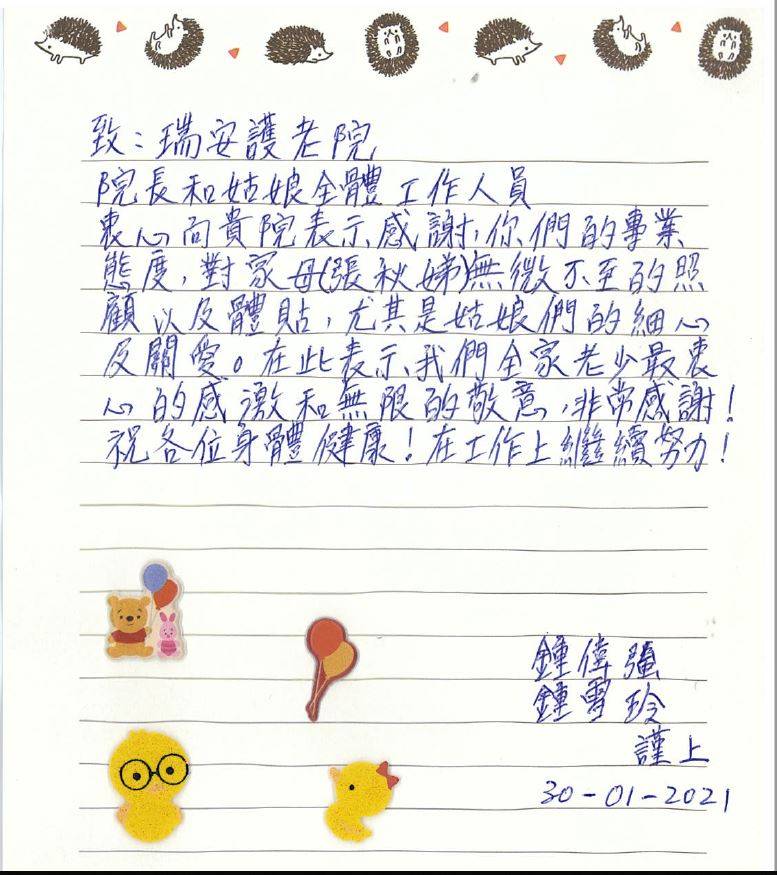 致：瑞安護老院
院長和姑娘全體工作人員
衷心向貴院表示感謝，你們的事業
態度，對家母(張秋娣)無微不至的照
顧以及體貼，尤其是姑娘們的細心
及關愛。在此表示我們全家老少最衷
心的感激和無限的敬意，非常感謝！
祝各位身體健康！在工作上繼續努力！
鍾偉強
鍾雪玲
謹上
30-01-2021